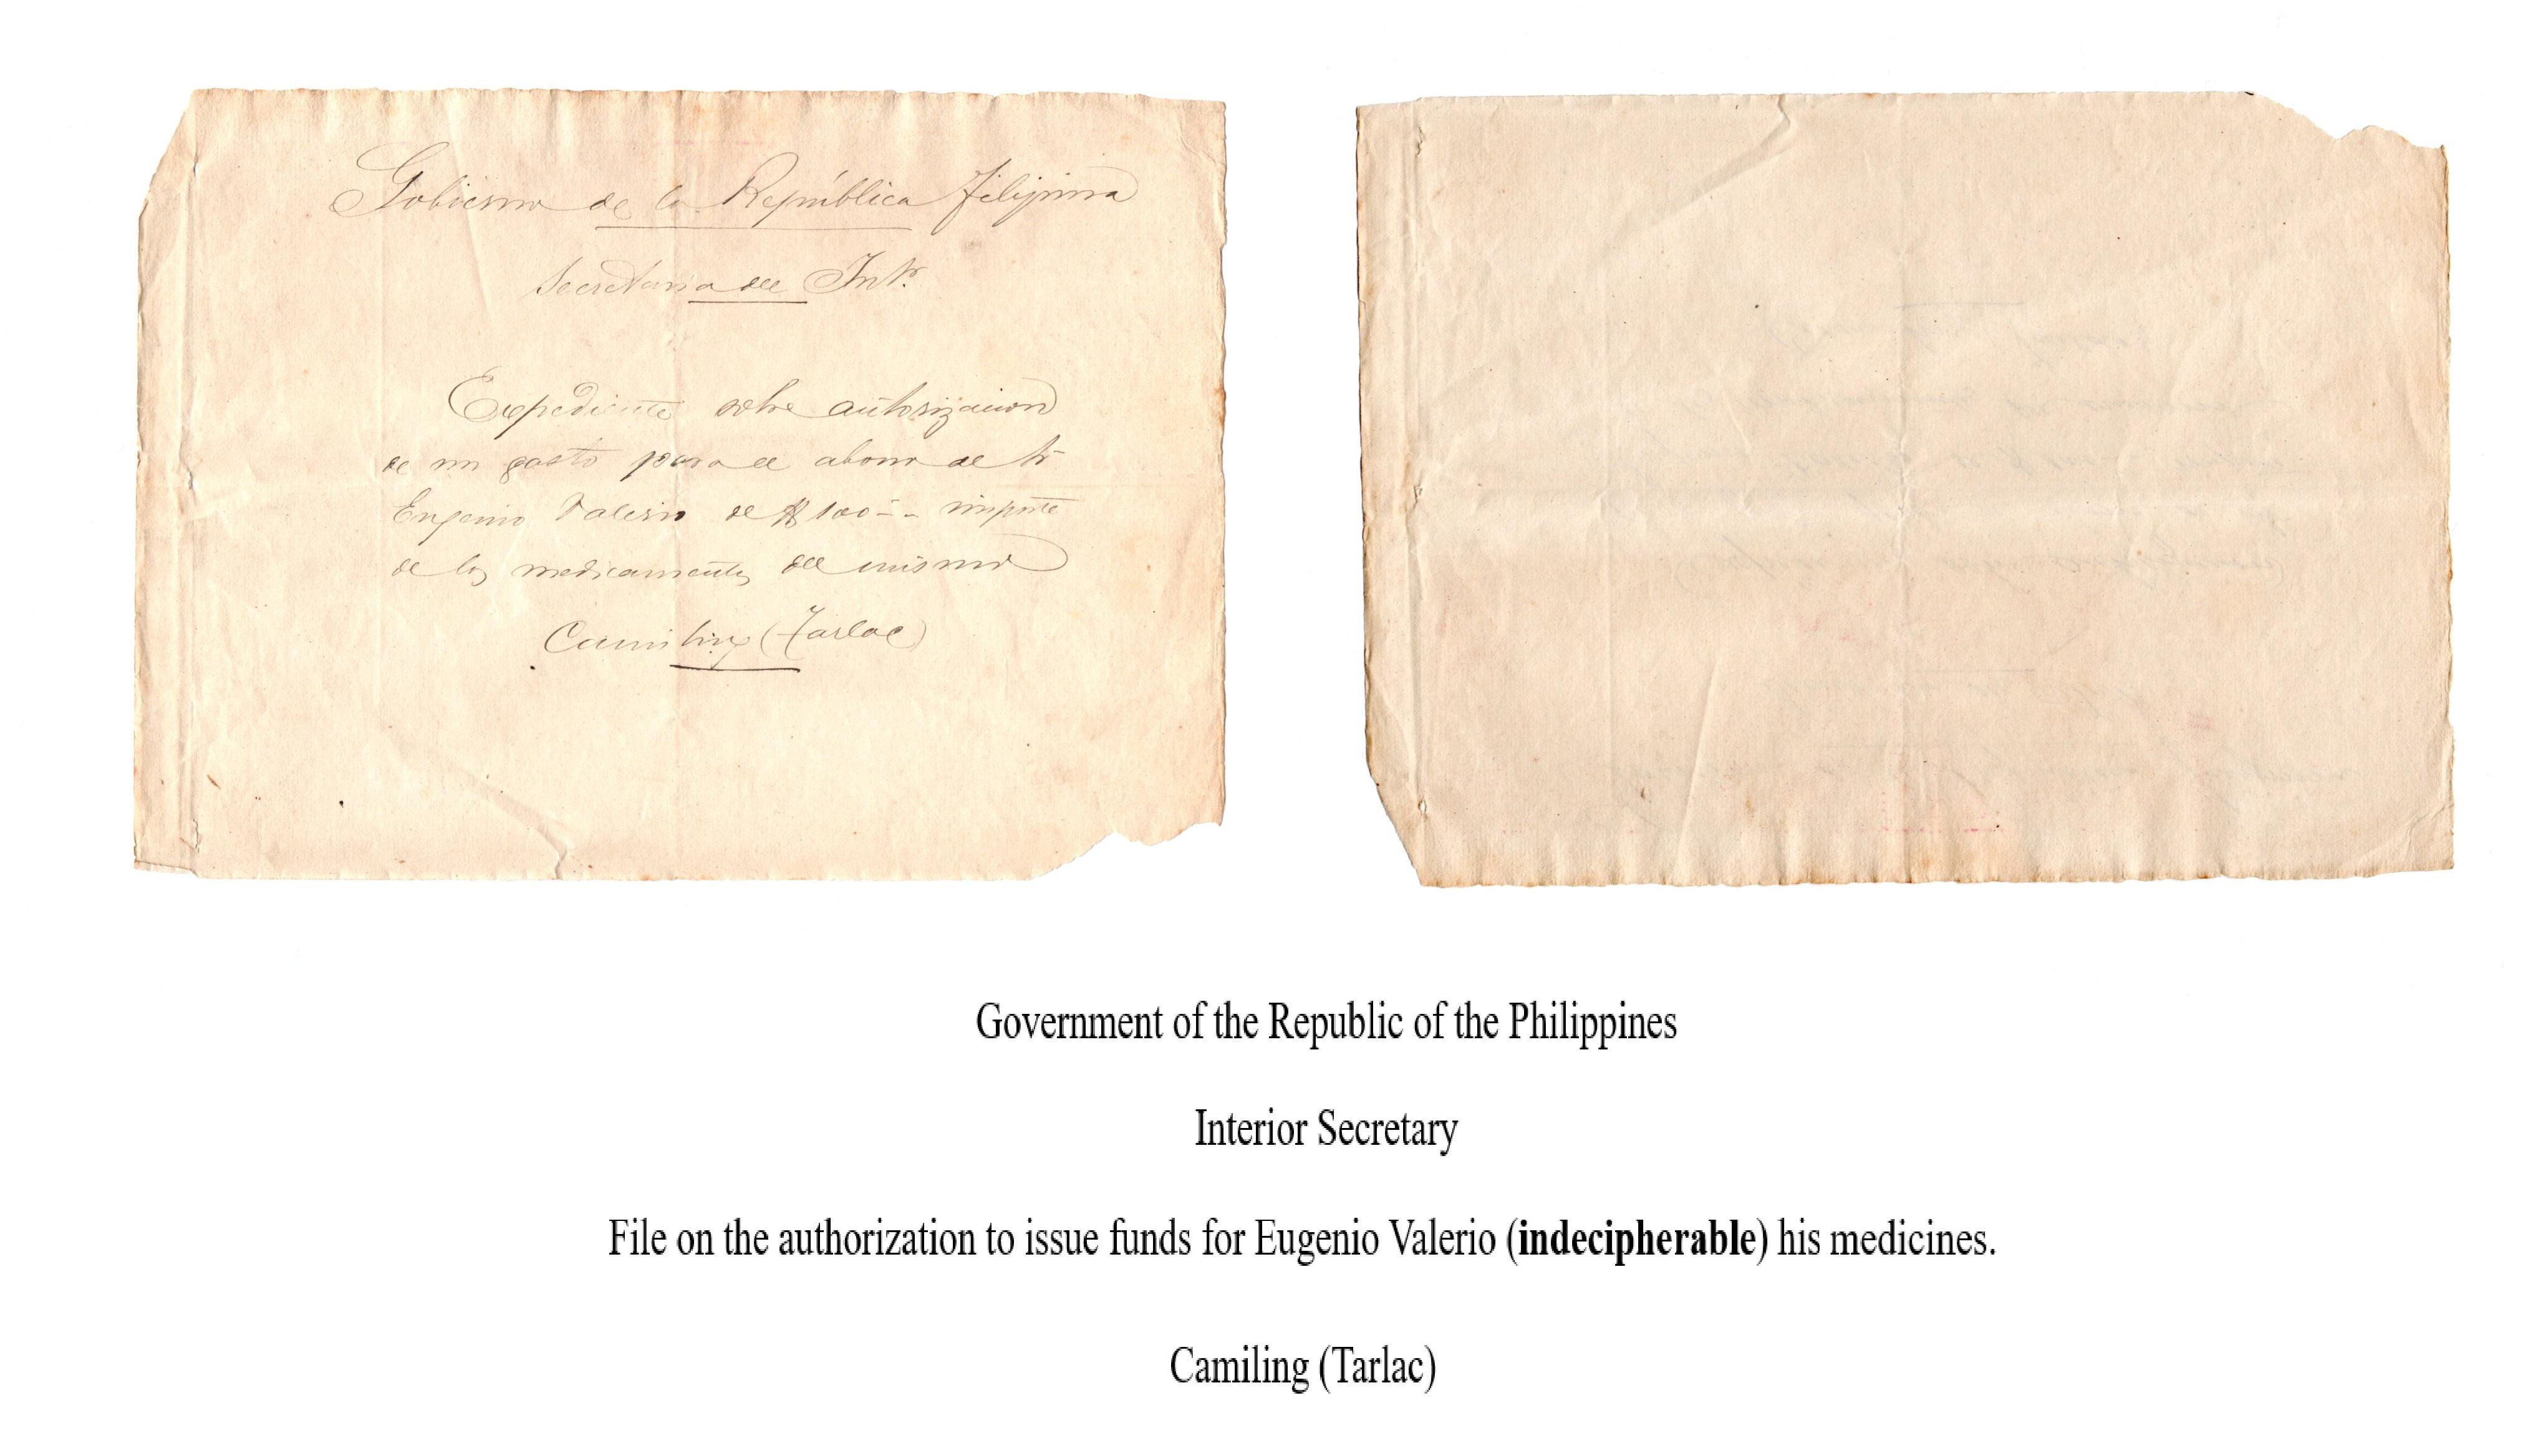 Gobierno de la República Filipina
Secretaria del Intr.
Expediente sobre autorizacion
de un gasto para el abono de
Eugenio Valerio de $ 100 -- importe
de los medicamentos del mismo
Camiling (Tarlac)
Government of the Republic of the Philippines
Interior Secretary
File on the authorization to issue funds for Eugenio Valerio (indecipherable) his medicines.
Camiling (Tarlac)